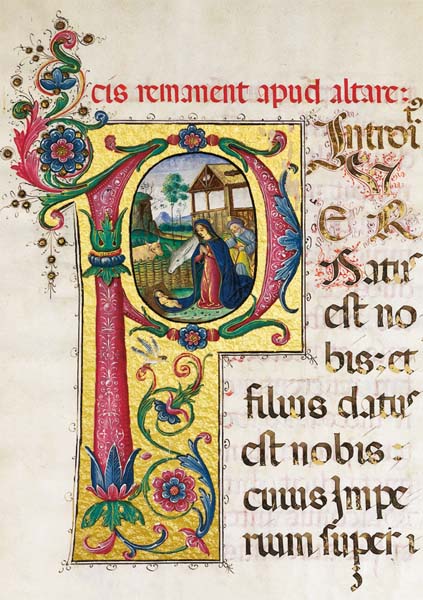 cis remanent apud altare:
Introit
P
V
E R
Natus
est no
bis: et
filius datus
est nobis:
cuius Impe
rium super i